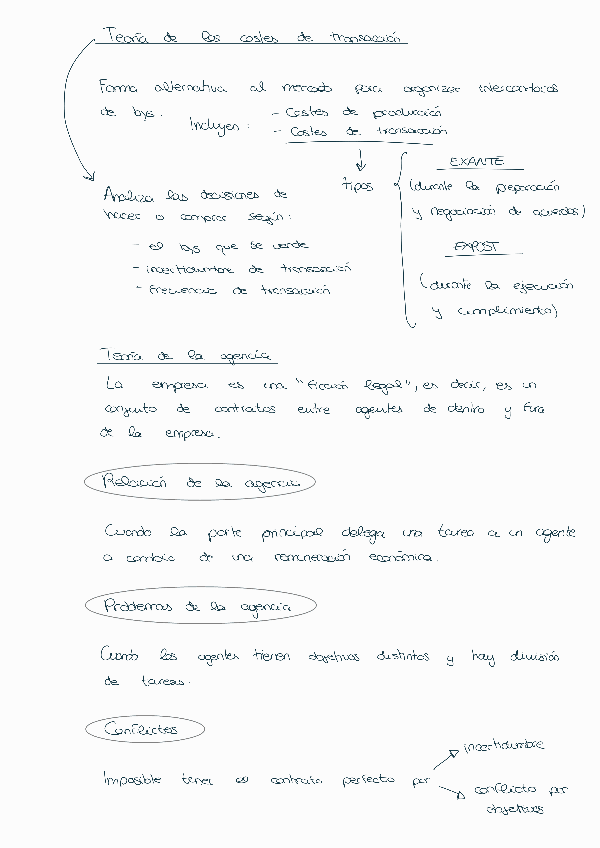 Teoría de los costes de transacción
Forma alternativa al mercado para organizar intercambios
de bys. Incluyen: - Costes de producción
- Costes de transacción
tipos
EXANTE
(durante la preparación
y negociación de acuerdos)
EXPOST
(durante la ejecución
y cumplimiento)
Analiza las decisiones de
hacer o comprar según:
- el bys que se vende
- incertidumbre de transacción
- frecuencia de transacción
Teoría de la agencia
La empresa es una "ficción legal", es decir, es un
conjunto de contratos entre agentes de dentro y fura
de la empresa.
Relación de la agencia
Cuando la parte principal delega una tarea a un agente
a cambio de una remuneración económica.
Problemas de la agencia
Cuando los agentes tienen objetivos distintos y hay división
de tareas.
Conflictos
Imposible tener contrato perfecto por
incertidumbre
conflicto por
objetivos